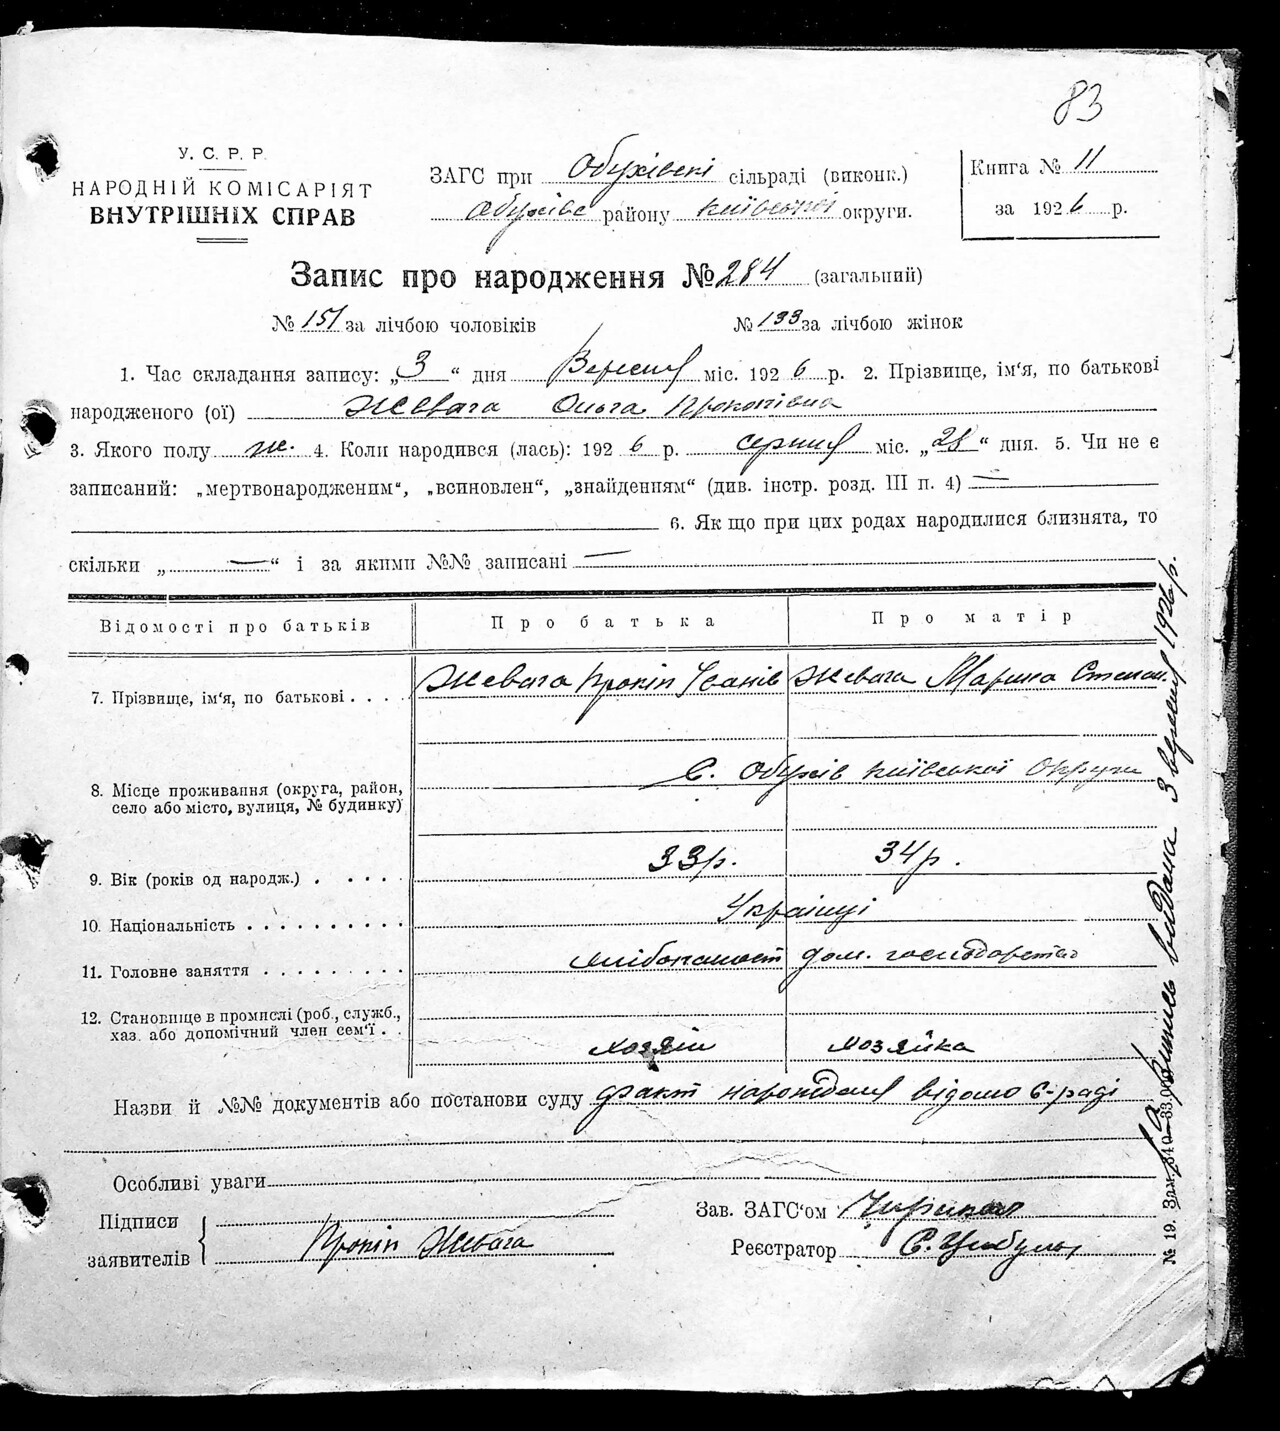 83
У. С. Р. Р.
НАРОДНІЙ КОМІСАРІЯТ
ВНУТРІШНІХ СПРАВ
ЗАГС при Обухівскі сільраді (виконк.)
Обухівс району Київської округи.
Книга № 11
за 1926 р.
Запис про народження № 284 (загальний)
№ 151 за лічбою чоловіків № 133 за лічбою жінок
1. Час складання запису: „3“ дня Вересня міс. 1926 р. 2. Прізвище, ім'я, по батькові
народженого (ої) Жевага Ольга Прокопівна
3. Якого полу ж. 4. Коли народився (лась): 1926 р. серпня міс. „28“ дня. 5. Чи не є
записаний: „мертвонародженим“, „всиновлен“, „знайденням“ (див. інстр. розд. III п. 4) —
6. Якщо при цих родах народилися близнята, то
скільки „—“ і за якими №№ записані —
Відомості про батьків Про батька Про матір
7. Прізвище, ім'я, по батькові . . . . Жевага Прокіп Іванів Жевага Марина Степан.
8. Місце проживання (округа, район,
село або місто, вулиця, № будинку) С. Обухів Київської Округи
9. Вік (років од народж.) . . . . . 33р. 34р.
10. Національність . . . . . . . . . . Українці
11. Головне заняття . . . . . . . . . хлібопашест дом. господарство
12. Становище в промислі (роб., служб.,
хаз. або допомічний член сем'ї . . хозяїн хозяйка
Назви й №№ документів або постанови суду факт народження відомо С-раді
Особливі уваги
Підписи
заявителів Прокіп Жевага
Зав. ЗАГС'ом
Реєстратор С. Цибуля
Випись видана 3 вересня 1926р.
№ 19.